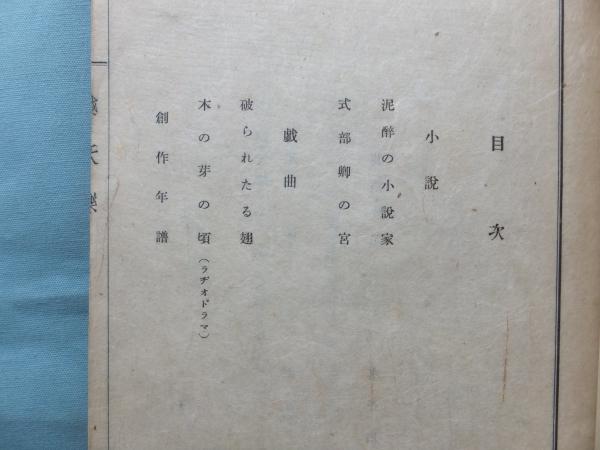 目次
小説
泥酔の小説家
式部卿の宮
戯曲
破られたる翅
木の芽の頃（ラヂオドラマ）
創作年譜